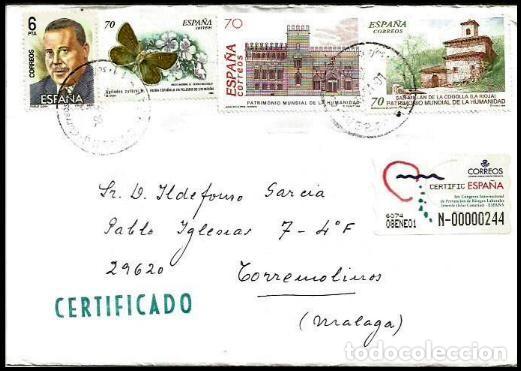 6
PTA
CORREOS
ESPAÑA
70
ESPAÑA
CORREOS
70
ESPAÑA
CORREOS
PATRIMONIO MUNDIAL DE LA HUMANIDAD
ESPAÑA
CORREOS
SAN MILLÁN DE LA COGOLLA (LA RIOJA)
70 PATRIMONIO MUNDIAL DE LA HUMANIDAD
CORREOS
CERTIFIC ESPAÑA
6074
08ENE01
N-00000244
Sr. D. Ildefonso Garcia
Pablo Iglesias 7-4ºF
29620
Torremolinos
(Malaga)
CERTIFICADO
todocoleccion